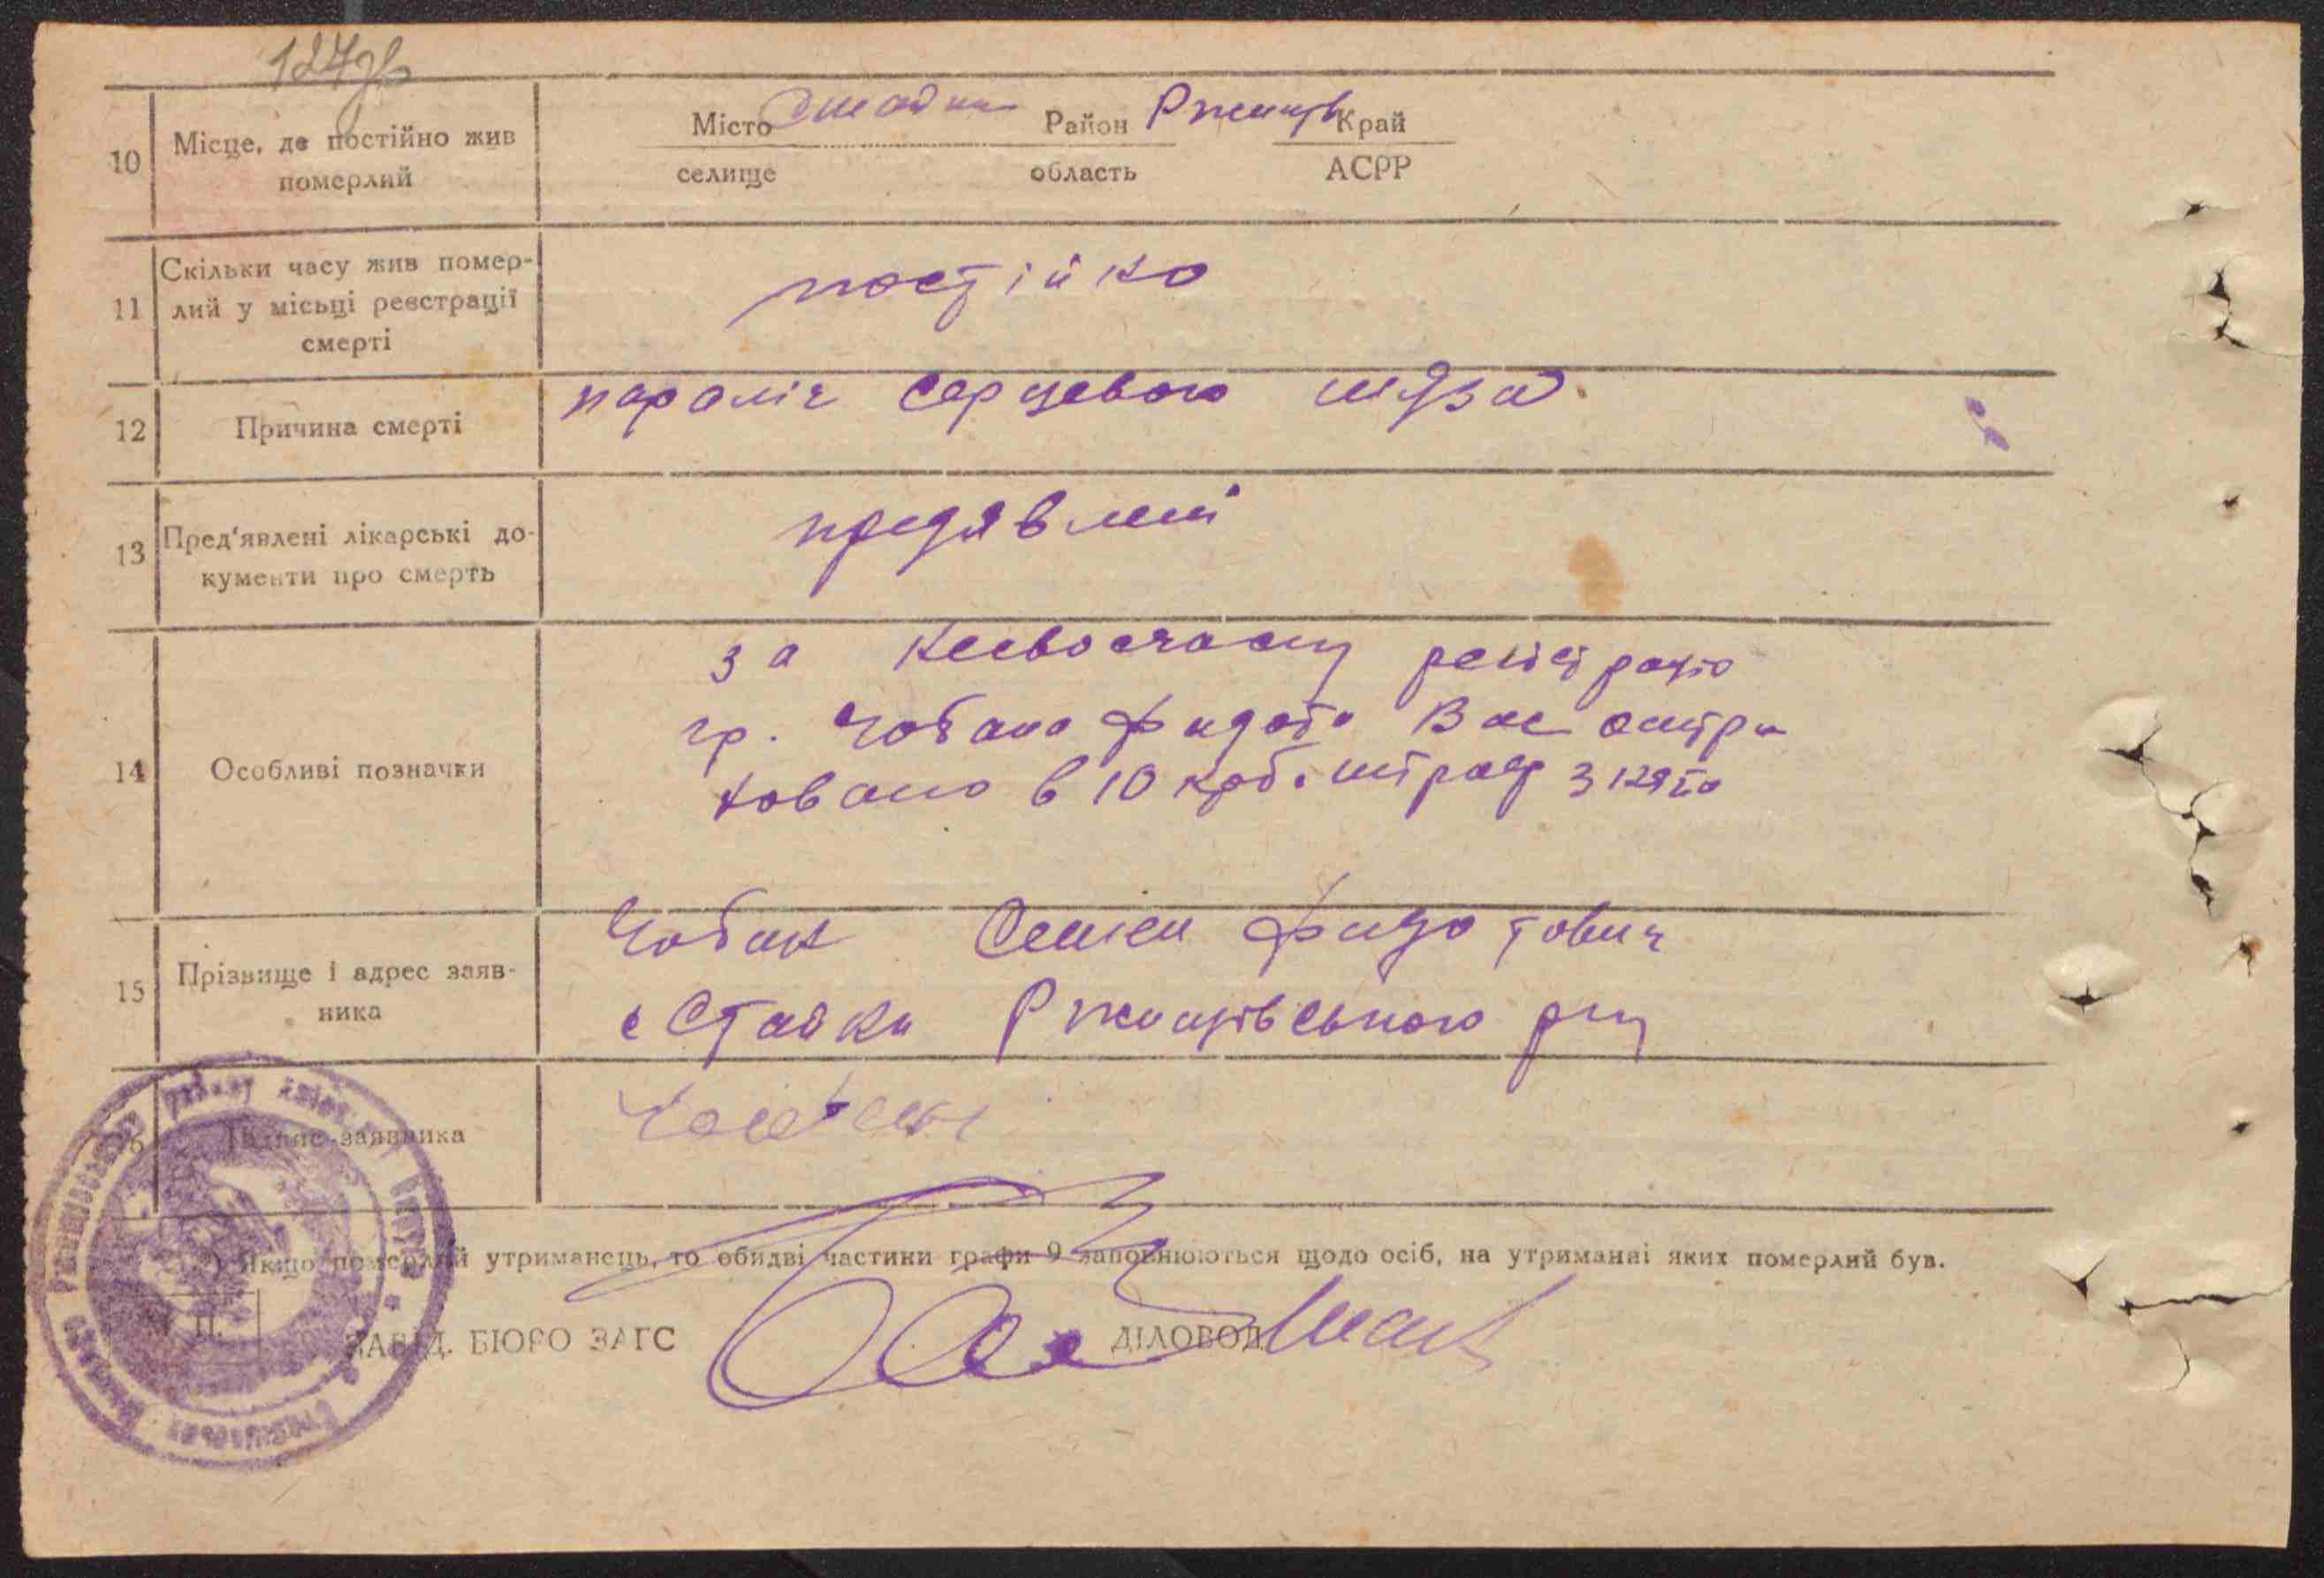 127зв
10 Місце, де постійно жив померлий
Місто Стайки Район Ржищів Край
селище область АСРР
11 Скільки часу жив помер-
лий у місьці реєстрації
смерті
постійно
12 Причина смерті
параліч серцевого мяза.
13 Пред'явлені лікарські до-
кументи про смерть
предявлені
14 Особливі позначки
за несвоєчасну
гр. Чобана Федота Вас оштра
ховано в 10 крб. штраф знято
15 Прізвище і адрес заяв-
ника
Чобан Семен Федотович
с Стайки Ржищівського р-ну
16 Підпис заявника
) Якщо померлий утриманець, то обидві частини графи 9 заповнюються щодо осіб, на утриманні яких померлий був.
М. П.
ЗАВІД. БЮРО ЗАГС ДІЛОВОД